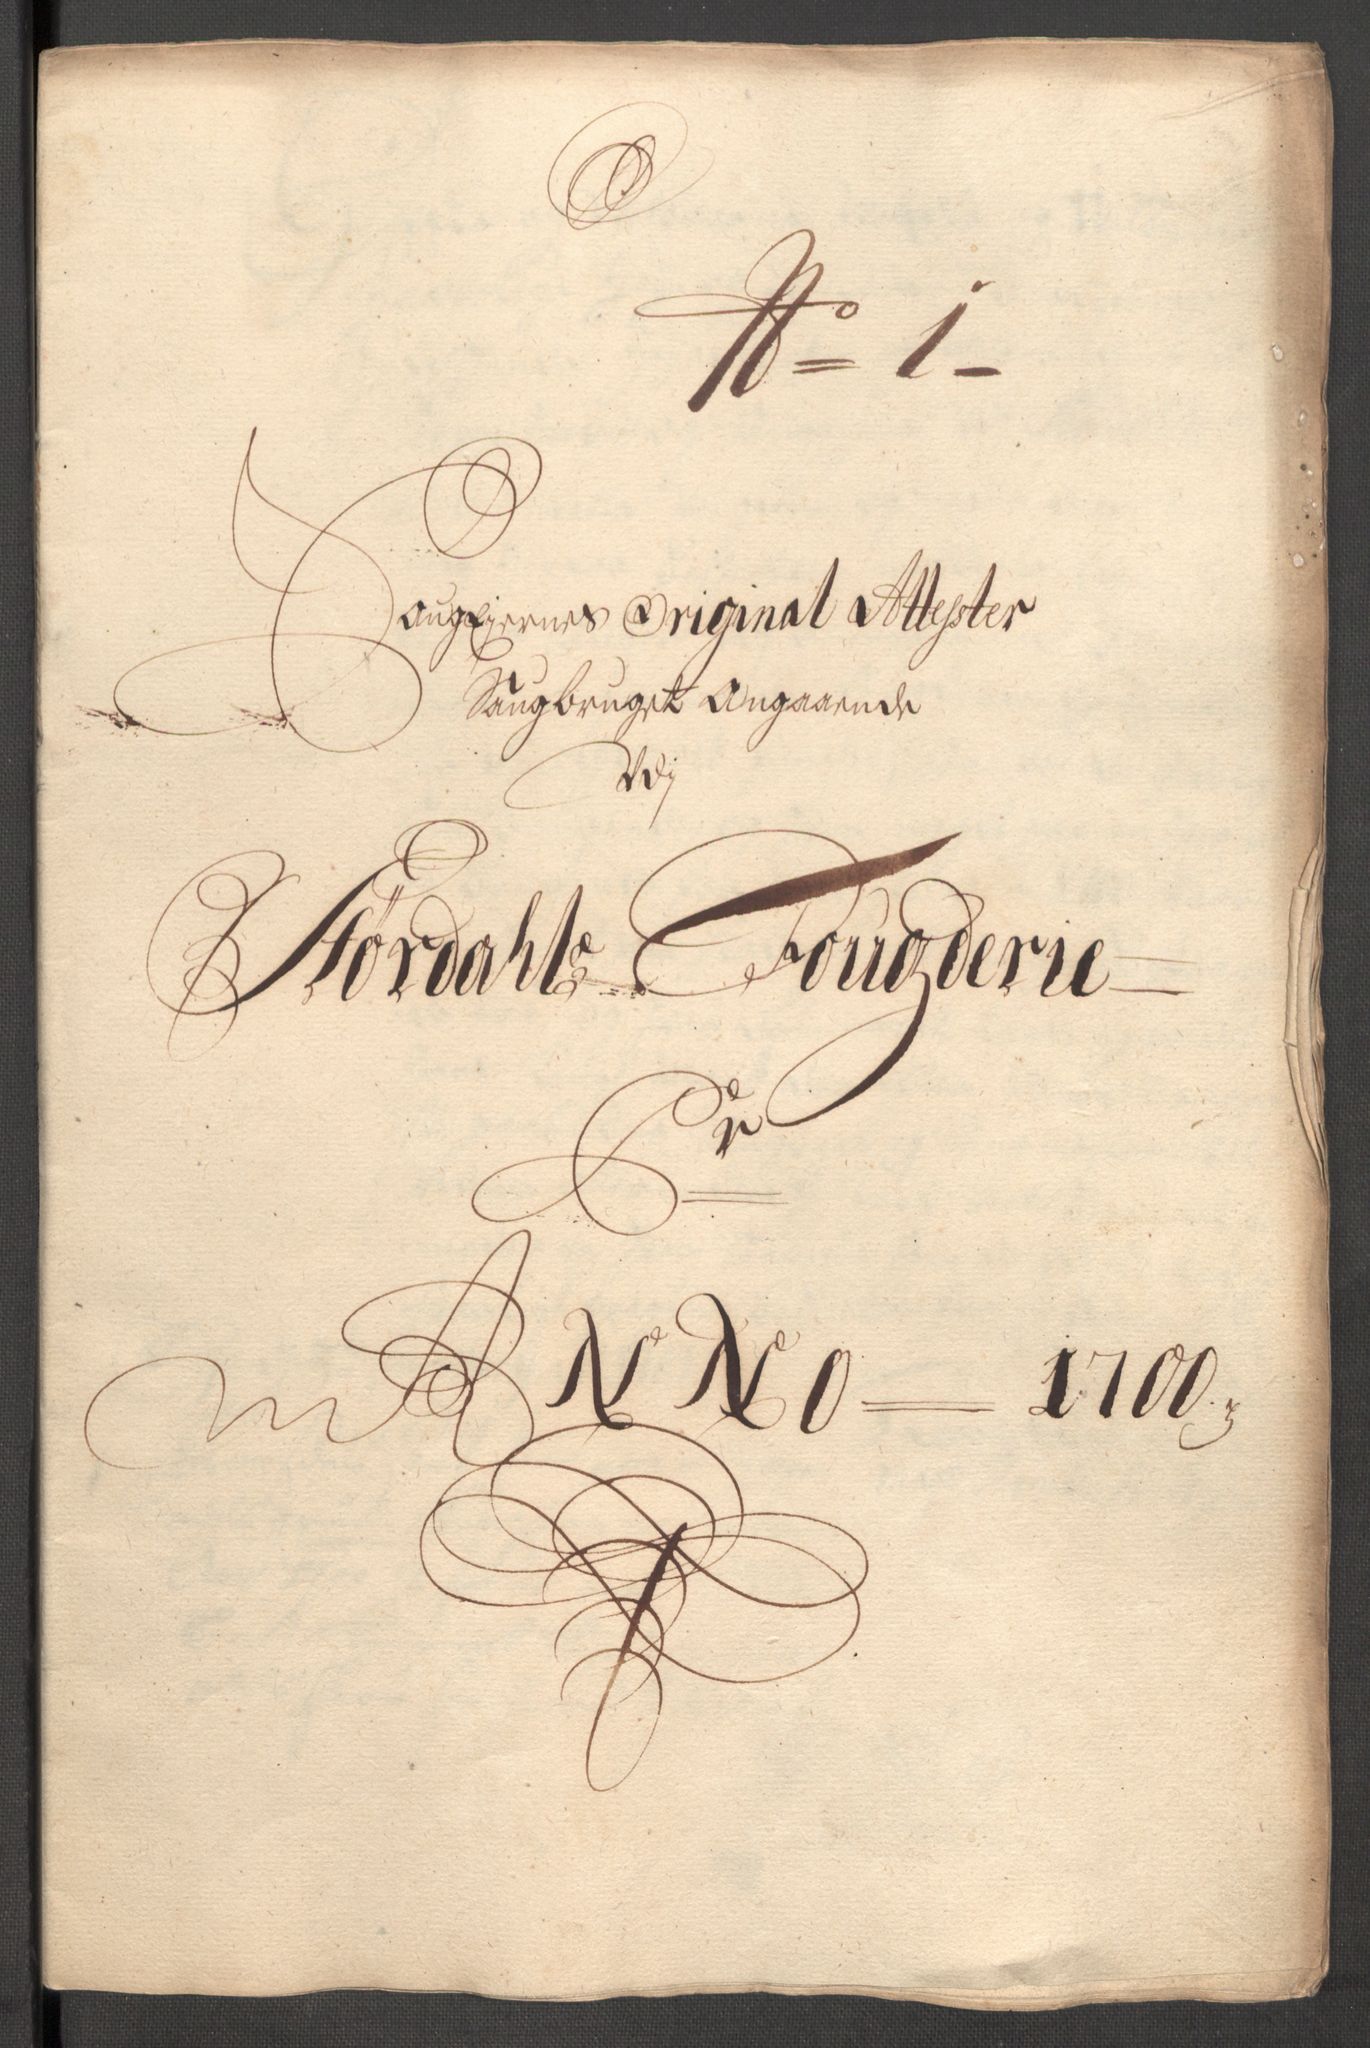 No 1
Saugeiernes Original Attester
Saugbruget Angaaende
Udj
Størdahls Fougderie
Pr
ANNO 1700